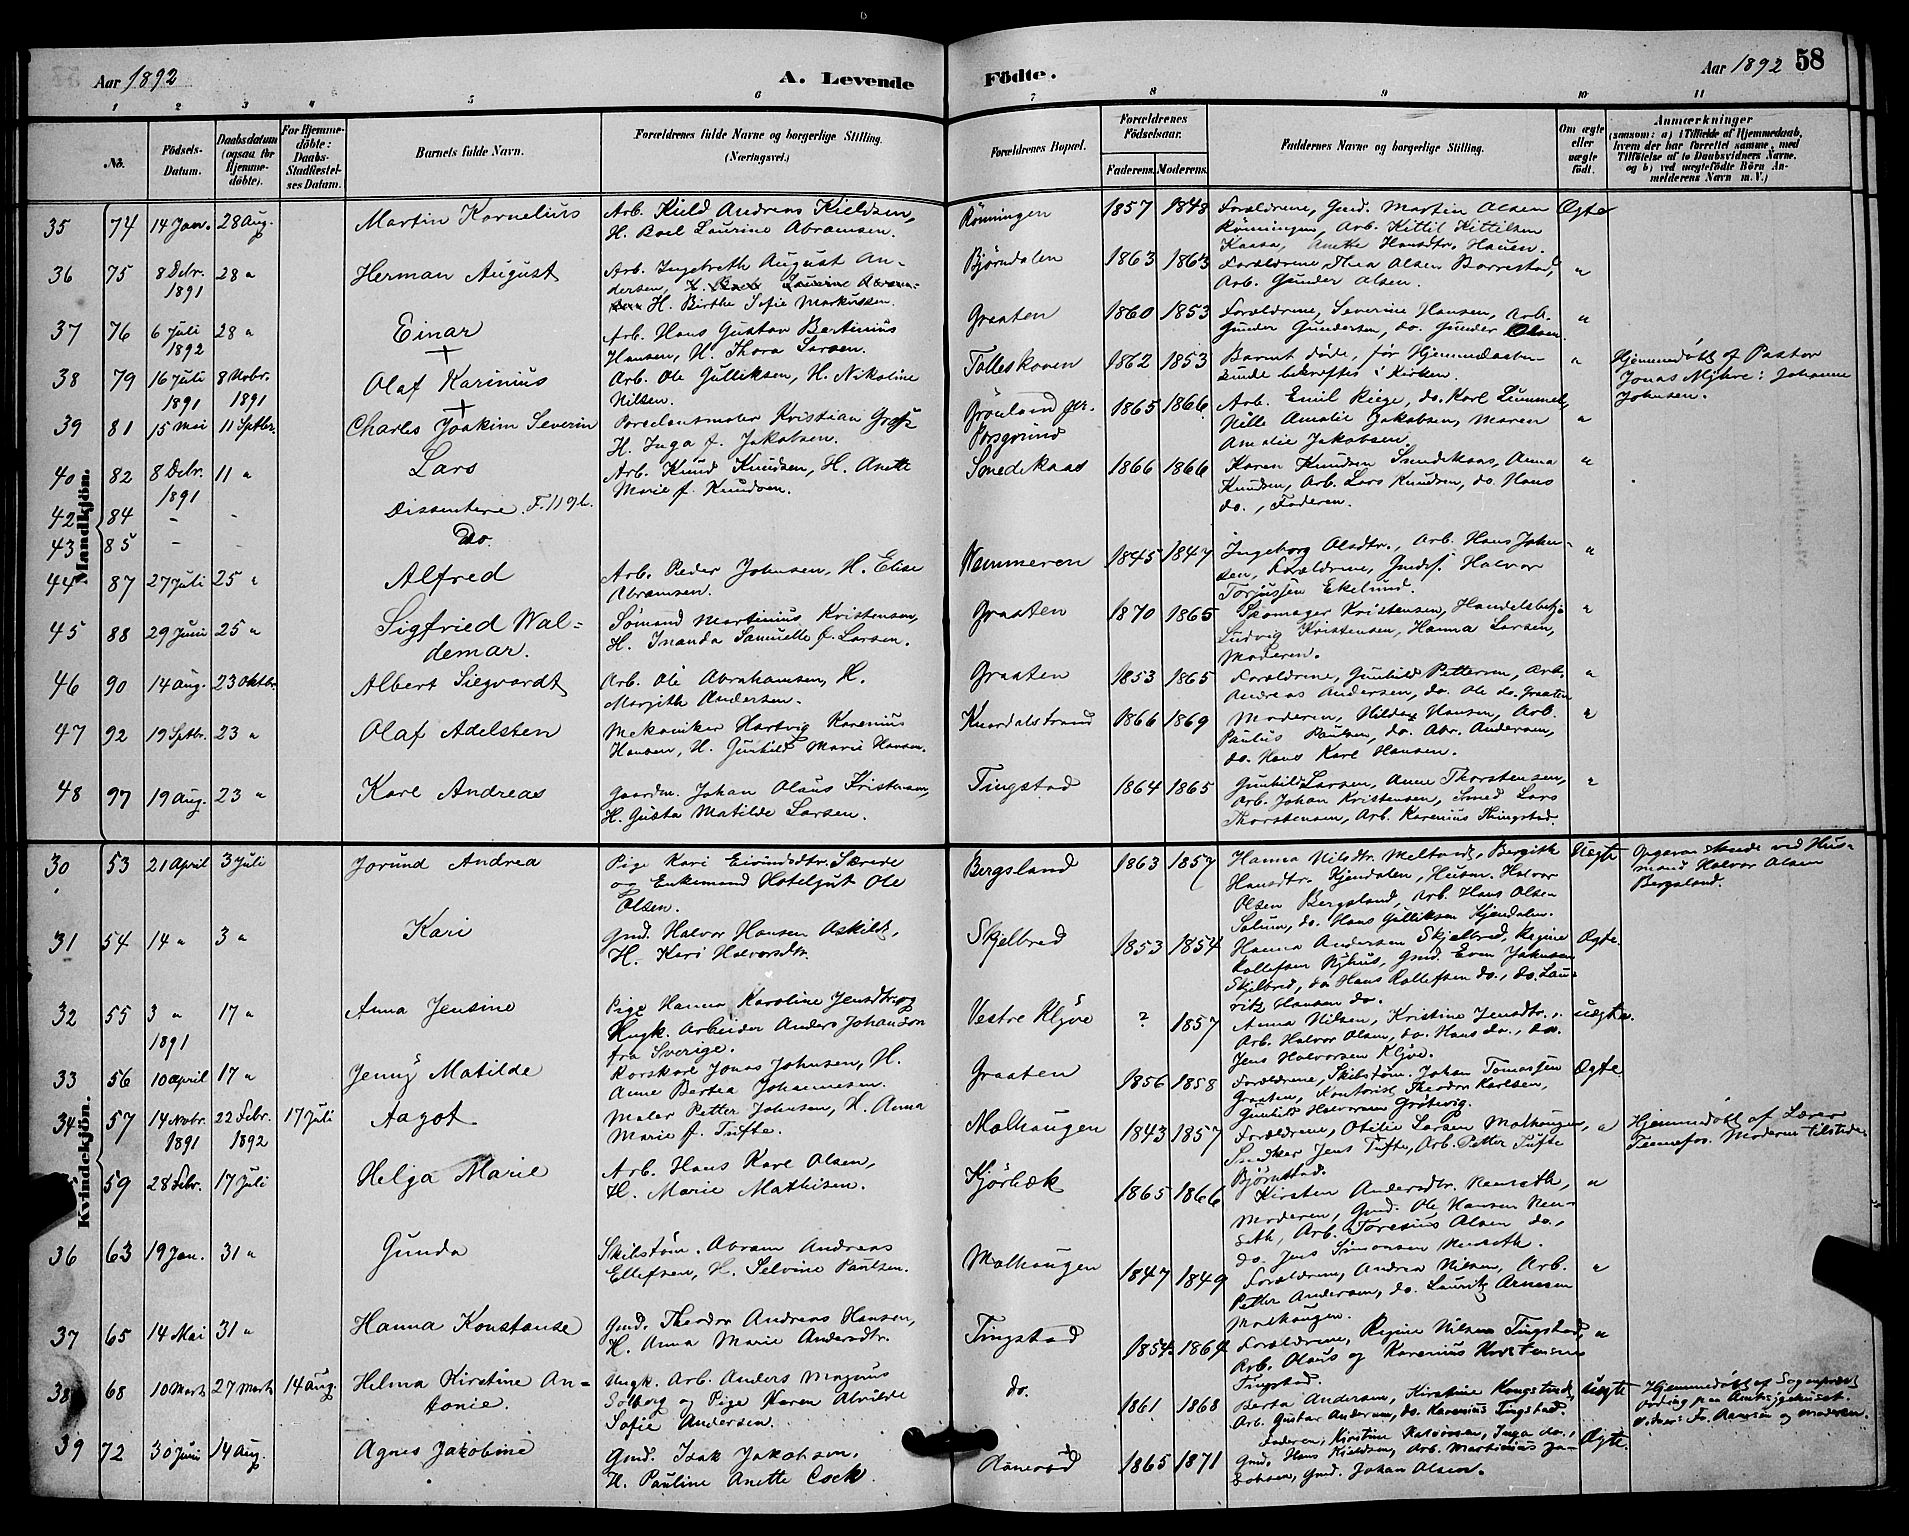 Aar 1892
A. Levende
Födte.
Aar 1892
58
1 2 3 4 5 6 7 8 9 10 11
No.
Födsels-
Datum.
Daabsdatum
(ogsaa for
Hjemme-
döbte).
For Hjemme-
döbte:
Daabs-
Stadfæstel-
ses Datum.
Barnets fulde Navn.
Forældrenes fulde Navne og borgerlige Stilling.
(Næringsvei.)
Forældrenes Bopæl.
Forældrenes
Födselsaar.
Faderens. Moderens.
Faddernes Navne og borgerlige Stilling.
Om ægte
eller
uægte
født.
Anmærkninger
(saasom: a) i Tilfælde af Hjemmedaab,
hvem der har forrettet samme, med
Tilföielse af to Daabsvidners Navne,
og b) ved uægtefödte Börn An-
melderens Navn m. V.)
Mandkjön.
35 74 14 Jan. 28 Aug. Martin Kornelius
Arb. Kield Andreas Kieldsen,
H. Boel Laurine Abramsen.
Rönningen 1857 1848
Forældrene, Gmd. Martin Olsen
Rönningen, Arb. Kittil Kittilsen
Kaasa, Anette Hansdtr. Hauen.
Ægte
36 75 8 Debr. 28 "
1891
Herman August
Arb. Ingebreth August An-
dersen,
H. Birthe Sofie Markussen.
Björndalen 1863 1863
Forældrene Thea Olsen Borrestad,
Arb. Gunder Olsen. "
37 76 6 Juli 28 "
1892
Einar
Arb. Hans Gustav Bertinius
Hansen, H. Thora Larsen.
Graaten 1860 1853
Forældrene, Severine Hansen, Arb.
Gunder Gundersen, do. Gunder Olsen "
38 79 16 Juli 8 Novbr.
1891 1891
Olaf Karinius
Arb. Ole Gulliksen, H. Nikoline
Nilsen.
Folleskoven 1862 1853
Barnet døde, før Hjemmedaaben
kunde bekræftes i Kirken. "
Hjemmedøbt af Pastor
Jonas Myhre: Johanne
Johnsen.
39 81 15 Mai 11 Sptbr. Charles Joakim Severin
Porcelænsmaler Kristian
H. Inga f. Jakobsen.
Grönland per
Porsgrund 1865 1866
Arb. Emil Riege, do. Karl Lummel,
Nille Amalie Jakobsen, Maren
Amalie Jakobsen. "
40 82 8 Debr. 11 "
1891
Lars
Arb. Knud Knudsen, H. Anette
Marie f. Knudsen.
Smedekaas 1866 1866
Karen Knudsen Smedekaas, Anna
Knudsen, Arb. Lars Knudsen, do. Hans
do., Faderen. "
42 84 - - Dissentere.
43 85 - Do.
44 87 27 Juli 25 " Alfred
Arb. Peder Johnsen, H. Elise
Abramsen.
1845 1847
Ingeborg Olsdtr., Arb. Hans John-
sen, Forældrene, Halvor
Torjussen Ekelund. "
45 88 29 Juni 25 " Sigfried Wal-
demar.
Sömand Martinius Kristensen,
H. Inanda Samuelle f. Larsen.
Graaten 1870 1865
Skomager Kristensen, Handelsbetj.
Ludvig Kristensen, Hanna Larsen,
Moderen. "
46 90 14 Aug. 23 Oktbr. Albert Siegvardt
Arb. Ole Abrahamsen, H.
Margith Andersen.
Graaten 1853 1865
Forældrene, Gunhild Pettersen, Arb.
Andreas Andersen, do. Ole do. Graaten "
47 92 19 Sptbr. 23 " Olaf Adelsten
Mekaniker Hartvig Karenius
Hansen, H. Gunhild Marie Hansen.
Knardalstrand 1866 1869
Moderen, Hilda Hansen, Arb.
Paulus Paulsen, do. Abr. Andersen,
do. Hans Karl Hansen. "
48 97 19 Aug. 23 " Karl Andreas
Gaardm. Johan Olaus Kristensen,
H. Gusta Matilde Larsen.
Tingstad 1864 1865
Gunhild Larsen, Anne Thorstensen,
Arb. Johan Kristensen, Smed Lars
Thorstensen, Arb. Karenius Thingstad. "
Kvindekjön.
30 53 21 April 3 Juli Jorund Andrea
Pige Kari Eivindsdtr. Særede
og Enkemand Ole
Olsen.
Bergsland 1863 1857
Hanna Nilsdtr. Meltand, Bergith
Hansdtr. Kjendalen, Husm. Halvor
Olsen Bergsland, Arb. Hans Olsen
Solum, do. Hans Gulliksen Kjendalen.
Uægte
Opgaven skede ved Hus-
mand Halvor Olsen
Bergsland.
31 54 14 " 3 " Kari
Gmd. Halvor Hansen Askildt,
H. Kari Halvorsdtr.
Skjelbred 1853 1854
Hanna Andersen Skjelbred, Regine
Rollefsen Nyhus, Gmd. Even Jakobsen
Skjelbred, do Hans Rollefsen do., do. Lau-
ritz Hansen do.
Ægte.
32 55 3 " 17 "
1891
Anna Jensine
Pige Hanna Karoline Jensdtr. og
Ungk. Arbeider Anders Johanson
fra Sverige.
Vestre Klyve ? 1857
Anna Nilsen, Kristine Jensdtr.,
Arb. Halvor Olsen, do. Hans do., do.
Jens Halvorsen Klyve.
uægte.
33 56 10 April 17 " Jenny Matilde
Korskarl Jonas Johnsen, H.
Anne Bertea Johannesen.
Graaten 1856 1858
Forældrene, Skilstöm. Johan Tomassen
Graaten, Kontorist Theodor Karlsen,
Gunhild Halvorsen Grötsvig.
Ægte.
34 57 14 Novbr. 22 Febr. 17 Juli
1891 1892
Aagot
Maler Petter Johnsen, H. Anna
Marie f. Tufte.
Molhaugen 1843 1857
Forældrene, Otilie Larsen Molhaugen,
Snedker Jens Tufte, Arb. Petter Tufte
Björnstad. "
Hjemmedøbt af Lærer
Tennefos. Moderen tilstede.
59 28 Febr. 17 Juli Helga Marie
Arb. Hans Karl Olsen,
H. Marie Mathisen.
Kjörbæk 1865 1866
Kirsten Andersdtr. Nenseth,
Moderen, Gmd. Ole Hansen Nen-
seth, Arb. Toresius Olsen do.,
do. Jens Simonsen Nenseth. "
36 63 19 Jan. 31 " Gunda
Skilstöm. Abram Andreas
Ellefsen, H. Selvine Paulsen.
Molhaugen 1847 1849
Forældrene, Andrea Nilsen, Arb.
Petter Andersen, do. Lauritz Arnesen
Molhaugen. "
37 65 14 Mai 31 " Hanna Konstanse
Gmd. Theodor Andreas Hansen,
H. Anna Marie Andersdtr.
Tingstad 1854 1864
Forældrene, Regine Nilsen Tingstad,
Arb. Olaus og Karenius Kristensen
Tingstad. "
38 68 10 Marts 27 Marts 14 Aug. Helma Kirstine An-
tonie.
Ungk. Arb. Anders Magnus
Solberg og Pige Karen Alvilde
Sofie Andersen.
do. 1861 1868
Berta Andersen, Kirstine Kongstind,
Arb. Gustav Andersen, do. Karenius Tingstad.
uægte
Hjemmedøbt af Sogneprest
paa Amtssygehuset.
og Moderen.
39 72 30 Juni 14 Aug. Agnes Jakobine
Gmd. Isak Jakobsen,
H. Pauline Anette Cock.
1865 1871
Faderen, Kirstine Halvorsen, Inga do.,
Gmd. Hans Kieldsen, Arb. Martinius Ja-
kobsen, Gmd. Johan Olsen.
Ægte.